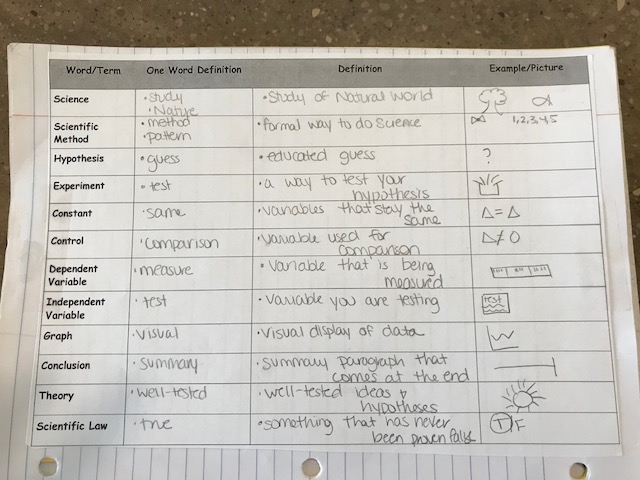 Word/Term One Word Definition Definition Example/Picture
Science
• study
• Nature
• Study of Natural World
Scientific
Method
• method
• pattern
• formal way to do Science
1,2,3,4,5
Hypothesis • guess • educated guess ?
Experiment • test • a way to test your
hypothesis
Constant • same • variables that stay the
same
△ = △
Control • comparison • Variable used for
comparison
△ ≠ O
Dependent
Variable
• measure • Variable that is being
measured
Independent
Variable
• test • Variable you are testing test
Graph • Visual • Visual display of data
Conclusion • summary • Summary paragraph that
comes at the end
Theory • well-tested • well-tested ideas &
hypotheses
Scientific Law • true • something that has never
been proven false
T/F